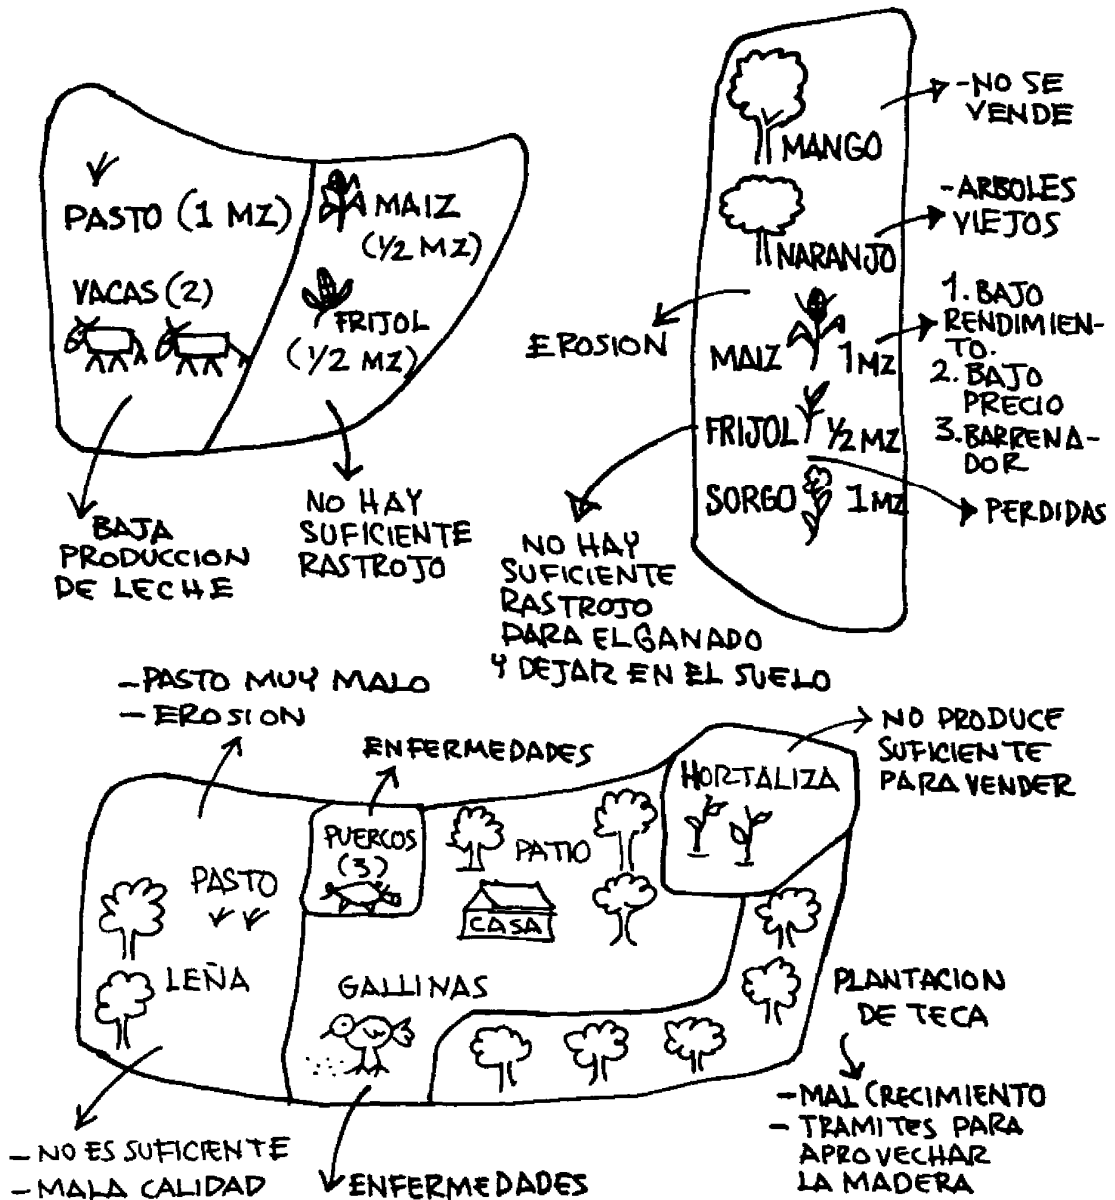 PASTO (1 MZ)
VACAS (2)
MAIZ
(1/2 MZ)
FRIJOL
(1/2 MZ)
BAJA
PRODUCCION
DE LECHE
NO HAY
SUFICIENTE
RASTROJO
MANGO
- NO SE
VENDE
NARANJO
- ARBOLES
VIEJOS
EROSION
MAIZ 1 MZ
1. BAJO
RENDIMIEN-
TO.
2. BAJO
PRECIO
3. BARRENA-
DOR
FRIJOL 1/2 MZ
SORGO 1 MZ
PERDIDAS
NO HAY
SUFICIENTE
RASTROJO
PARA EL GANADO
Y DEJAR EN EL SUELO
- PASTO MUY MALO
- EROSION
ENFERMEDADES
NO PRODUCE
SUFICIENTE
PARA VENDER
HORTALIZA
PUERCOS
(3)
PATIO
PASTO
CASA
LEÑA
GALLINAS
PLANTACION
DE TECA
- MAL CRECIMIENTO
- TRAMITES PARA
APROVECHAR
LA MADERA
- NO ES SUFICIENTE
- MALA CALIDAD
ENFERMEDADES